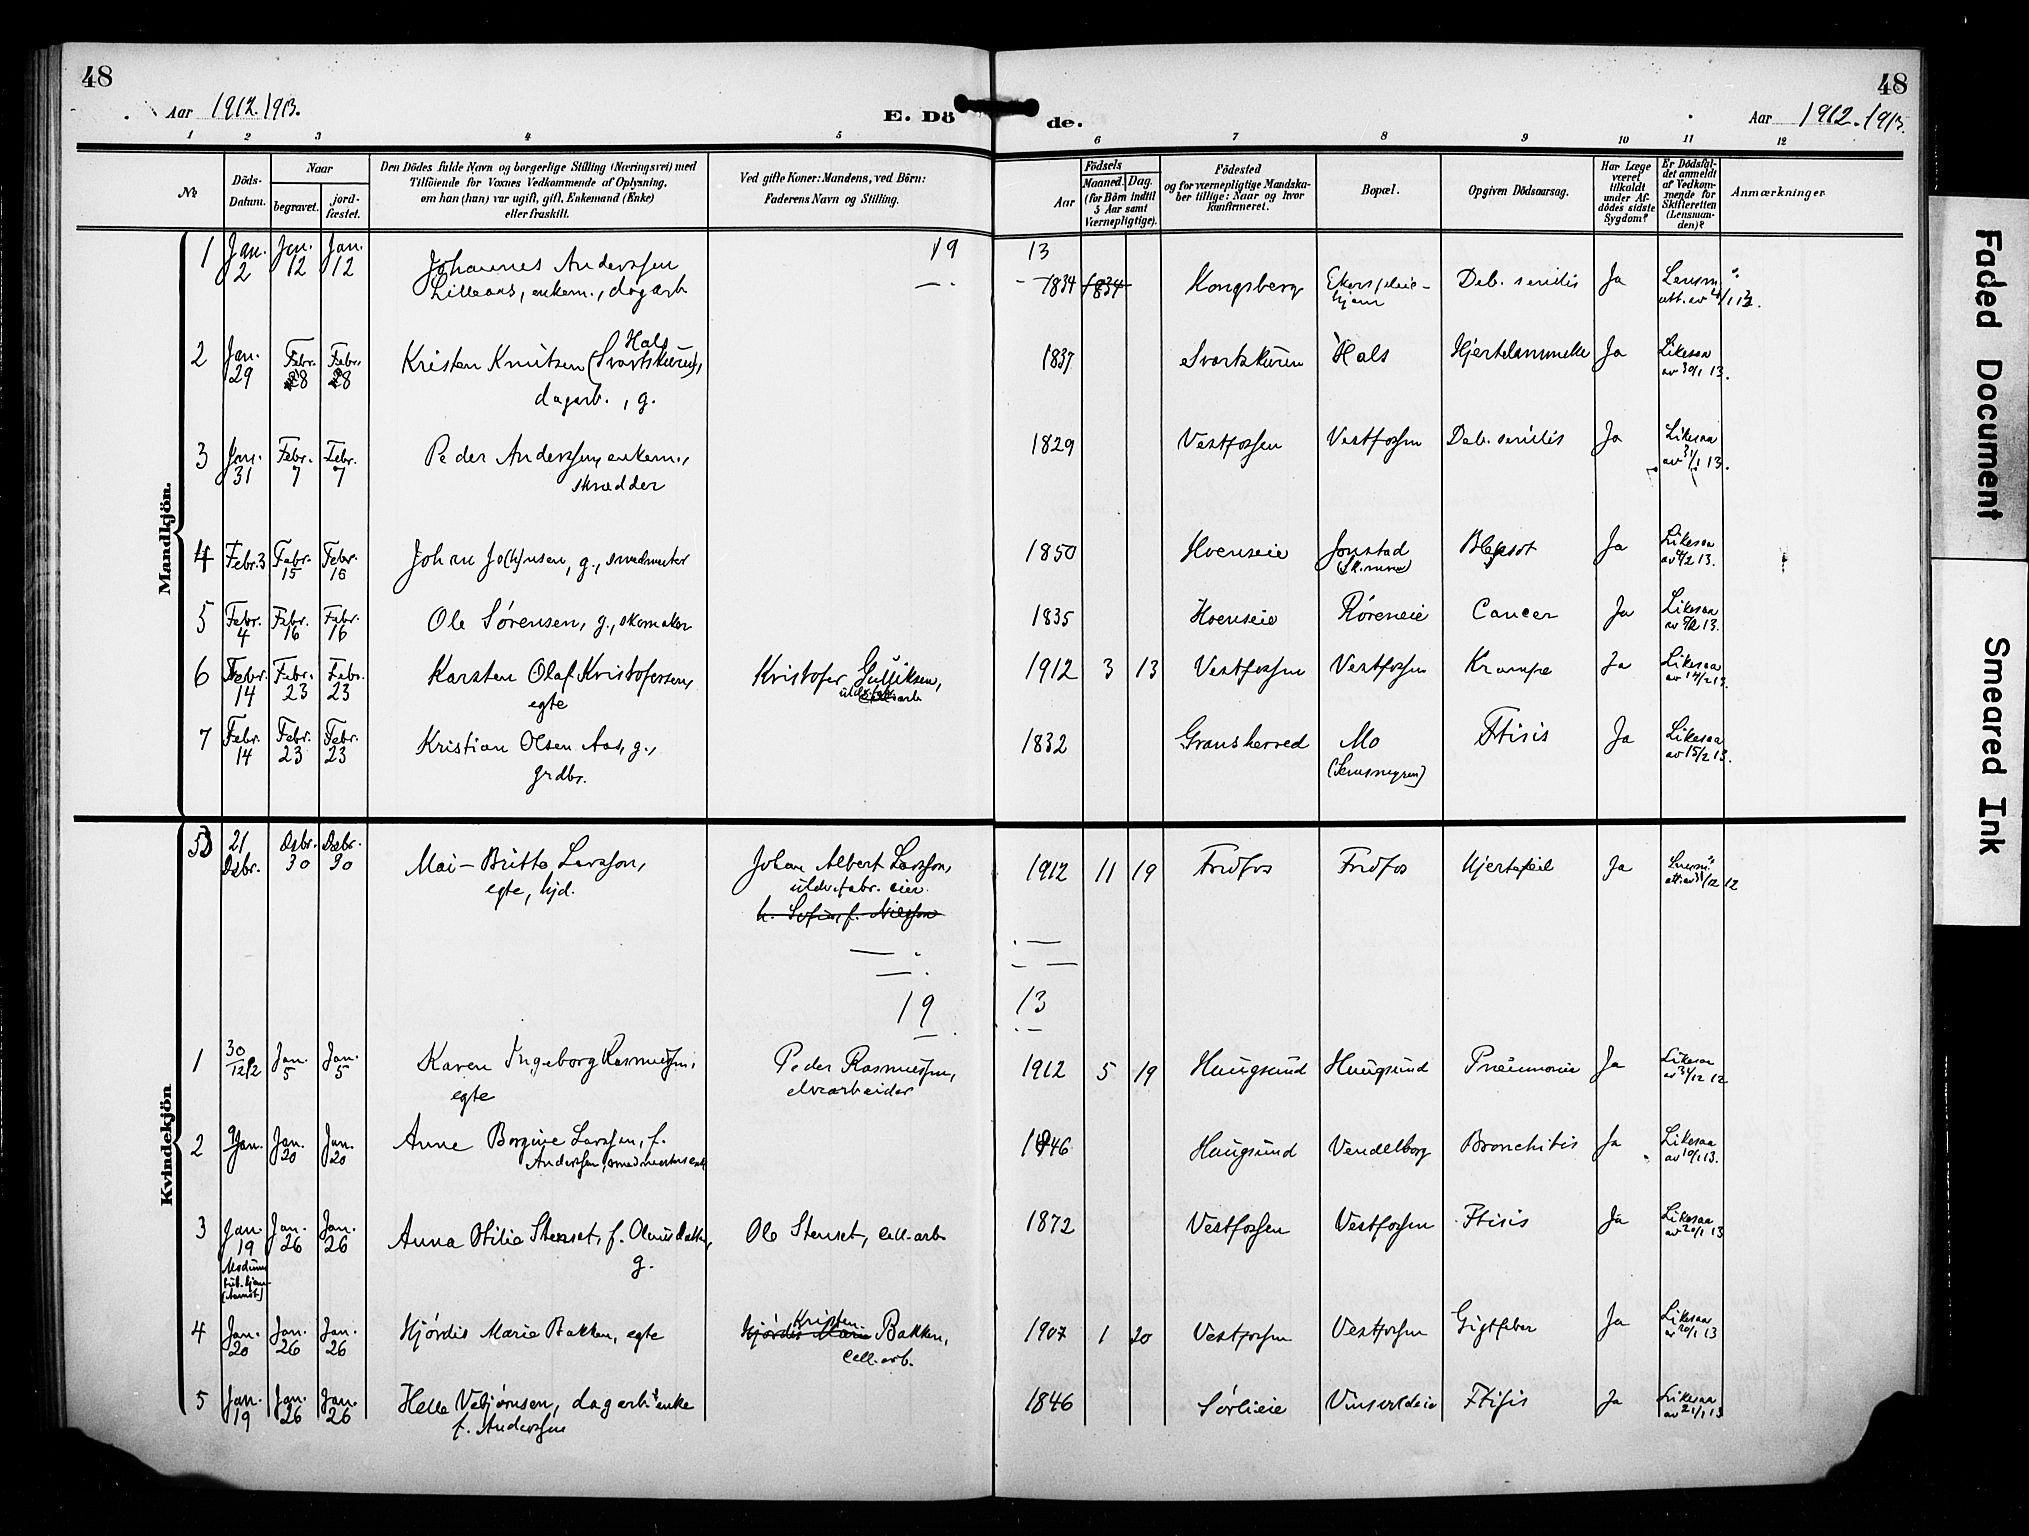 48
48
Aar 1912.1913.
E. Dö
de.
Aar 1912.1913.
1 2 3 4 5 6 7 8 9 10 11 12
No
Döds-
Datum.
Naar
begravet.
jord-
fæstet.
Den Dödes fulde Navn og borgerlige Stilling (Næringsvei) med
Tilföiende for Voxnes Vedkommende af Oplysning,
om han (hun) var ugift, gift, Enkemand (Enke)
eller fraskilt.
Ved gifte Koner: Mandens, ved Börn:
Faderens Navn og Stilling.
Födsels
Aar
Maaned. Dag.
(for Börn indtil
5 Aar samt
Værnepligtige).
Födested
og for værnepligtige Mandska-
ber tillige: Naar og hvor
konfirmeret.
Bopæl.
Opgiven Dödsaarsag.
Har Læge
været
tilkaldt
under Af-
dödes sidste
Sygdom?
Er Dödsfal-
det anmeldt
af Vedkom-
mende for
Skifteretten
(Lensman-
den)?
Anmærkninger
Mandkjön.
19 13
1 Jan. 2 Jan. 12 Jan. 12 Johannes Anderssen 1834 1834 Kongsberg Ekers pleie- Deb. senilis Ja Lensm
Lilleaas, enkem., dagarb hjem
Hals
2 Jan. 29 Febr. 8 Febr. 8 Kristen Knutsen (Svartskuren), 1837 Svartskuren Hals Hjertelammelse Ja Likesaa
dagarb., g. av 30/1 13.
3 Jan. 31 Febr. 7 Febr. 7 Peder Anderssen, enkem., 1829 Vestfossen Vestfossen Deb. senilis Ja Likesaa
skrædder av 31/1 13.
4 Febr. 3 Febr. 15 Febr. 15 Johan Jo(h)nsen, g., 1850 Hoenseie Jonstad Ja Likesaa
5 Febr. 4 Febr. 16 Febr. 16 Ole Sørensen, g., skomaker 1835 Hoenseie Røreneie Cancer Ja Likesaa
6 Febr. 14 Febr. 23 Febr. 23 Karsten Olaf Kristofersen, Kristofer Gulliksen, 1912 3 13 Vestfossen Vestfossen Krampe Ja Likesaa
egte av 14/2 13.
7 Febr. 14 Febr. 23 Febr. 23 Kristian Olsen Aas, g., 1832 Gransherred Mo Ftisis Ja Likesaa
grdbr. av 15/2 13.
Kvindekjön
21 Dsbr. Dsbr. 30 Dsbr. 30 Mai-Britta Larsson, Johan Albert Larsson, 1912 11 19 Fridfos Fridfos Hjertefeil Ja
egte, hjd. uldv.fabr. eier.
19 13
1 30/12 12 Jan. 5 Jan. 5 Karen Ingeborg Rasmussen, Peder Rasmussen, 1912 5 19 Haugsund Haugsund Pneumonie Ja Likesaa
egte elvearbeider av 31/12 12
2 9 Jan. Jan. 20 Jan. 20 Anne Borgine Larssen, f. 1846 Haugsund Vendelborg Bronchitis Ja Likesaa
Anderssen, av 10/1 13.
3 Jan. 19 Jan. 26 Jan. 26 Anna Otilie Stenset, f. Ole Stenset, cell.arb 1872 Vestfossen Vestfossen Ftisis Ja Likesaa
Modum g. av 20/1 13
4 Jan. 20 Jan. 26 Jan. 26 Hjørdis Marie Bakken, egte Hjørdis Marie Kristen Bakken, 1907 1 20 Vestfossen Vestfossen Gigtfeber Ja Likesaa
cell.arb. av 20/1 13
5 Jan. 19 Jan. 26 Jan. 26 Helle Vebjørnsen, dagarb. enke 1846 Sørlieie Ftisis Ja Likesaa
f. Anderssen av 21/1 13
Faded Document
Smeared Ink